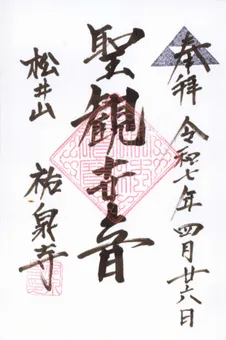 奉拝
令和七年四月廿六日
聖観世音
松井山
祐泉寺